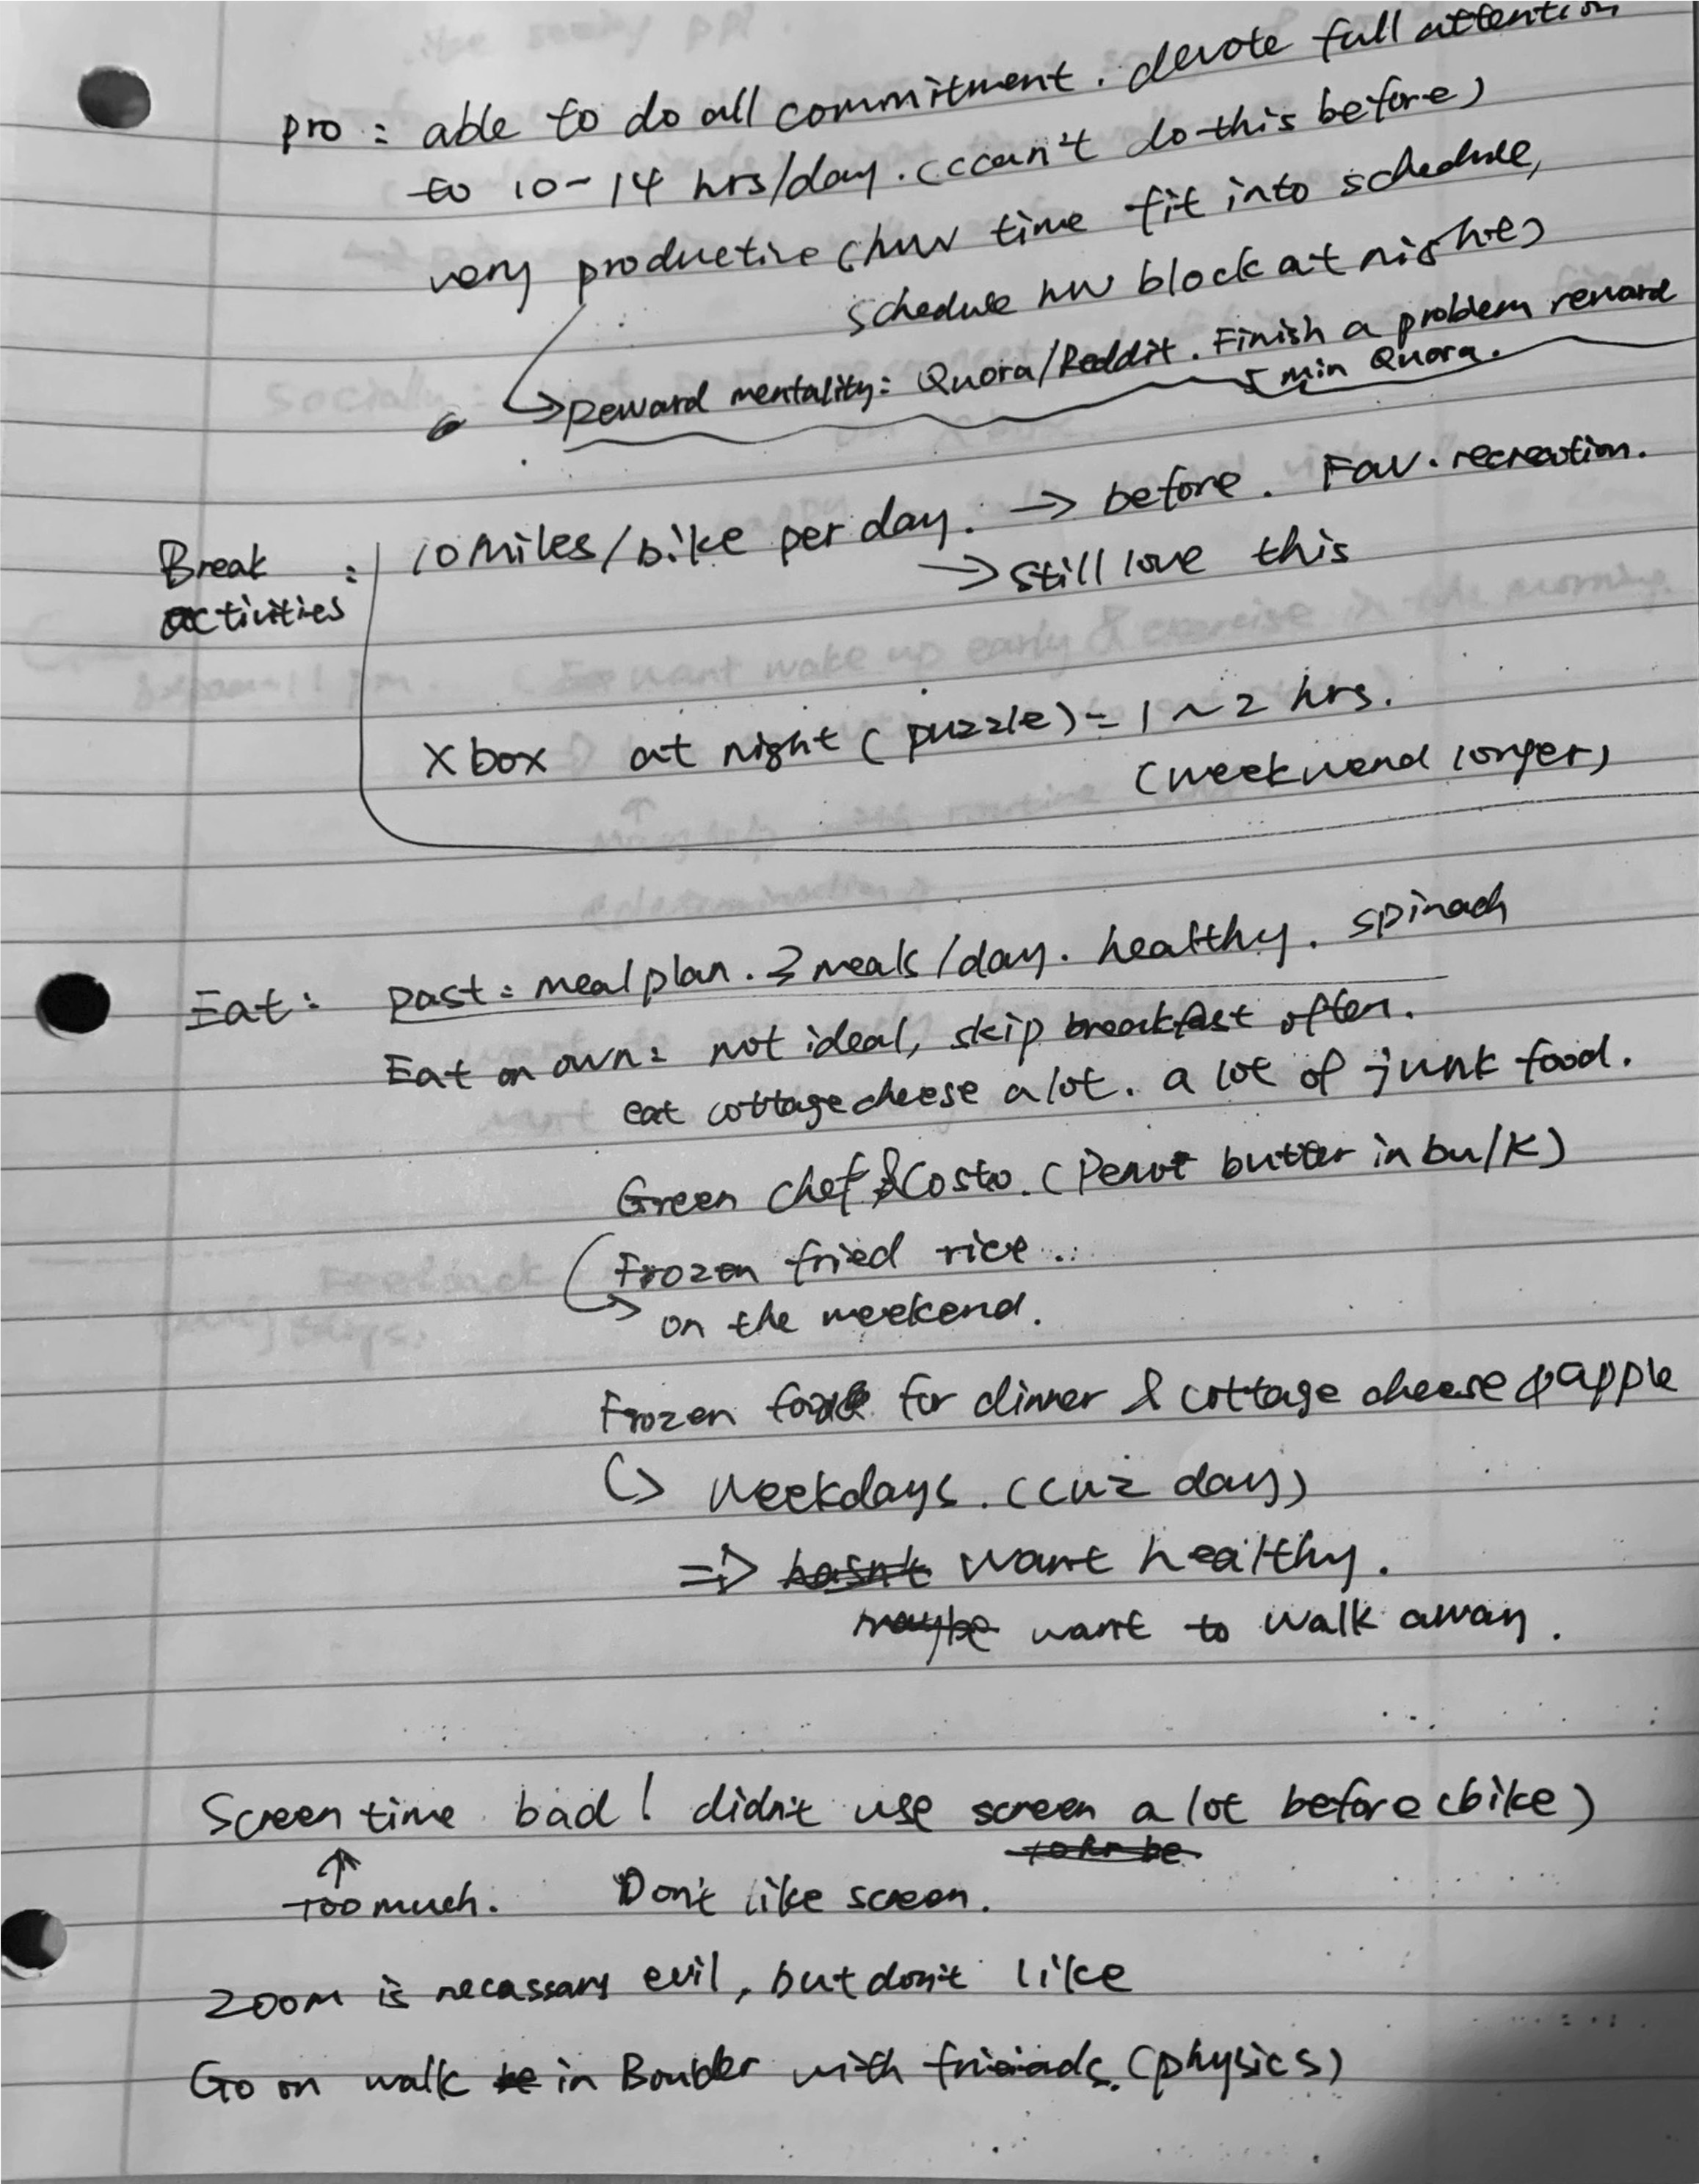 pro: able to do all commitment. devote full attention
to 10-14 hrs/day. (can't do this before)
very productive (hw time fit into schedule,
schedule hw block at night)
→ Reward mentality: Quora/Reddit. Finish a problem reward
5 min Quora.
Break activities: 10 miles/bike per day. → before. Fav. recreation.
→ still love this
Xbox at night (puzzle) = 1~2 hrs.
(weekwend longer)
Eat: past: meal plan. 3 meals/day. healthy. spinach
Eat on own: not ideal, skip breakfast often.
eat cottage cheese a lot. a lot of junk food.
Green chef & Costo. (Penut butter in bulk)
Frozen fried rice..
→ on the weekend.
Frozen for dinner & cottage cheese & apple
↳ weekdays. (cuz day)
⇒ hasn't want healthy.
maybe want to walk away.
Screen time bad! didn't use screen a lot before (bike)
↑
Too much. Don't like screen.
Zoom is necassary evil, but don't like
Go on walk in Boulder with friends. (physics)